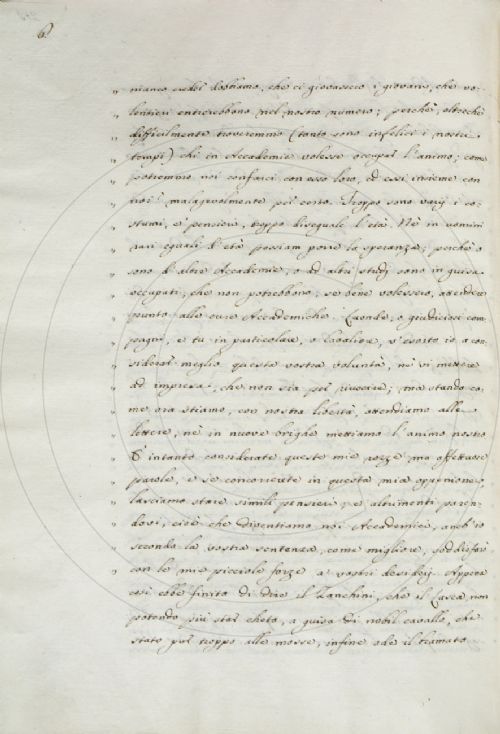 6
„ nianco crediʼ dobbiamo, che ci giovassero i giovani, che vo-
„ lentieri entrerebbono nel nostro numero; perchè, oltrechè
„ difficilmente troveremmo (tanto sono infelici i nostri
„ tempi) chi in Accademie volesse occupar l'animo; come
„ potremmo noi confarci con esso loro, ed essi insieme con
„ noi? malagevolmente per certo. Troppo sono varij i co-
„ stumi, e' pensieri, troppo diseguale l'età. Nè in uomini
„ vari eguali d'età possiam porre la speranza; perchè o
„ sono d'altre Accademie, o ad altri studj sono in guisa
„ occupati, che non potrebbono, se bene volessero, attendere
„ punto alle cure Accademiche. Laonde, o giudiciosi com-
„ pagni, e tu in particolare, o Cavaliere, v'esorto io a con-
„ siderar meglio questa vostra volontà, nè vi mettere
„ ad impresa, che non sia per riuscire; ma stando co-
„ me ora stiamo, con nostra libertà, attendiamo alle
„ lettere, nè in nuove brighe mettiamo l'animo nostro
„ E intanto considerate queste mie rozze ma affettuose
„ parole, e se concorrete in questa mia oppenione,
„ lasciamo stare simili pensieri; e altrimenti paren-
„ dovi, cioè che diventiamo noi Accademici, anch'io
„ secondo la vostra sentenza, come migliore, soddisfarò
„ con le mie picciole forze a' vostri desiderj. Appena
„ così ebbe finito di dire il Zanchini, che il Lasca non
„ potendo più star cheto, a guisa di nobil cavallo, che
„ stato pur troppo alle mosse, infine ode il bramato